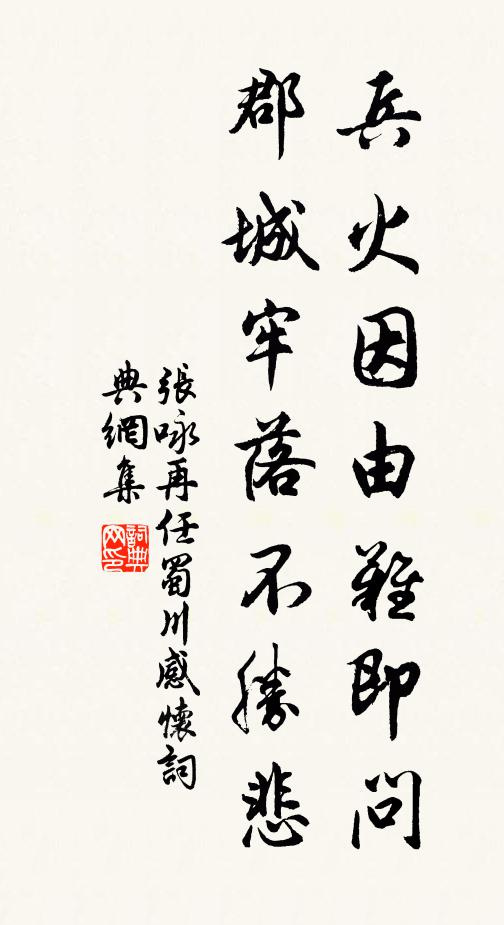 兵火因由難即問
郡城牢落不勝悲
張咏再任蜀川感懷詞
典網集
詞典网印